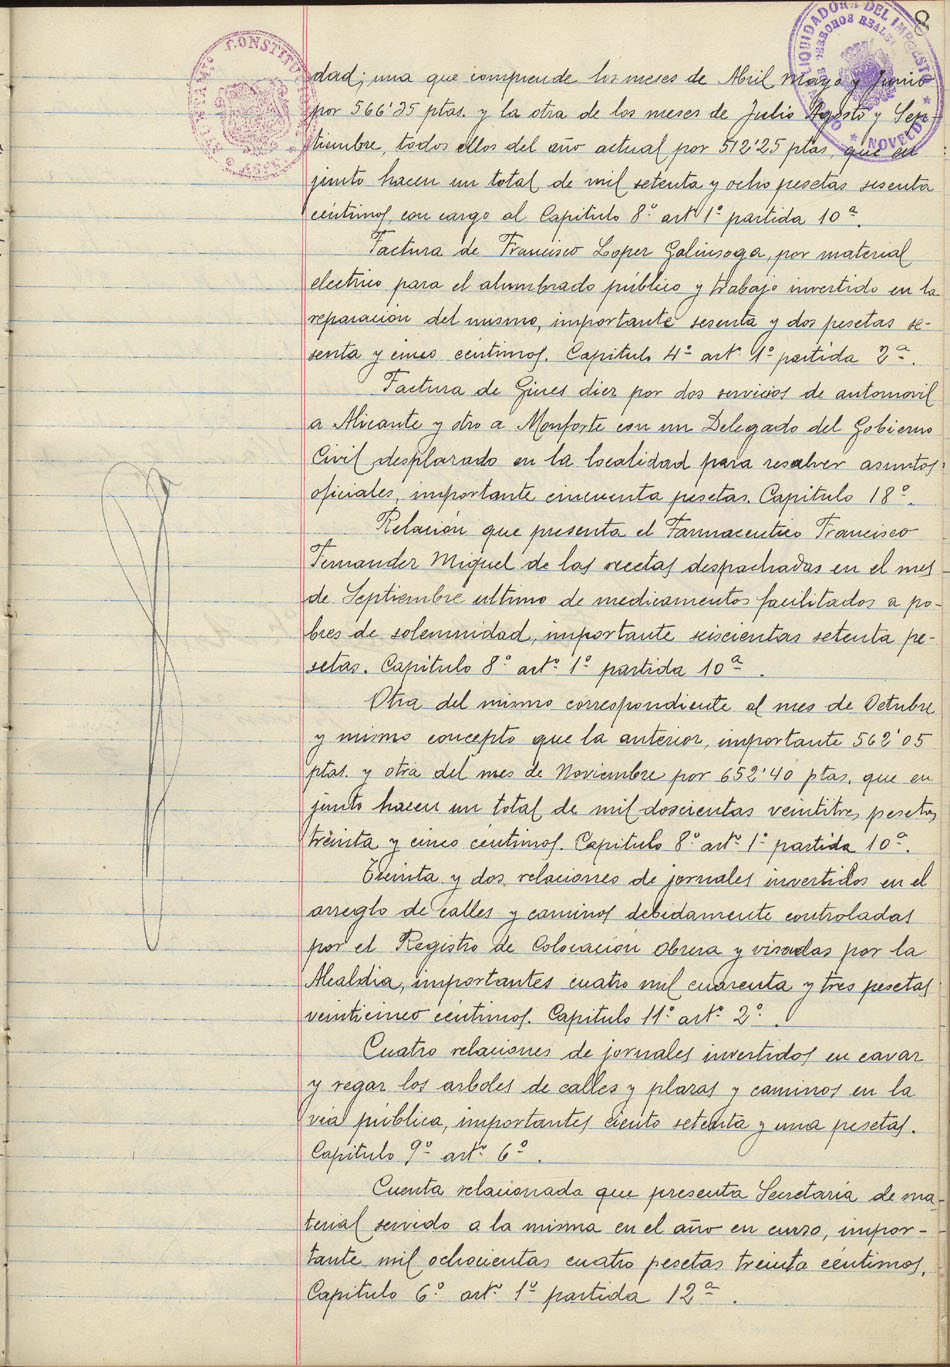 8
AYUNTAM
CONSTITU
LIQUIDADORA DEL IMPUESTO
DERECHOS REALES
NOVELDA
dad; una que comprende los meses de Abril Mayo y Junio
por 566'35 ptas. y la otra de los meses de Julio Agosto y Sep-
tiembre, todos ellos del año actual por 512'25 ptas, que en
junto hacen un total de mil setenta y ocho pesetas sesenta
céntimos, con cargo al Capitulo 8º artº 1º partida 10ª.
Factura de Francisco Loper Galinsoga, por material
electrico para el alumbrado público y trabajo invertido en la
reparación del mismo, importante sesenta y dos pesetas se-
senta y cinco céntimos. Capitulo 4º artº 1º partida 2ª.
Factura de Gines dier por dos servicios de automovil
a Alicante y otro a Monforte con un Delegado del Gobierno
Civil desplazado en la localidad para resolver asuntos
oficiales, importante cincuenta pesetas. Capitulo 18º.
Relación que presenta el Farmaceutico Francisco
Fernander Miguel de las recetas despachadas en el mes
de Septiembre ultimo de medicamentos facilitados a po-
bres de solemnidad, importante seiscientas setenta pe-
setas. Capitulo 8º artº 1º partida 10ª.
Otra del mismo correspondiente al mes de Octubre
y mismo concepto que la anterior, importante 562'05
ptas. y otra del mes de Noviembre por 652'40 ptas. que en
junto hacen un total de mil doscientas veintitres pesetas
treinta y cinco céntimos. Capitulo 8º artº 1º partida 10ª.
Treinta y dos relaciones de jornales invertidos en el
arreglo de calles y caminos debidamente controladas
por el Registro de Colocación Obrera y visadas por la
Alcaldia, importantes cuatro mil cuarenta y tres pesetas
veinticinco céntimos. Capitulo 11º artº 2º.
Cuatro relaciones de jornales invertidos en cavar
y regar los arboles de calles y plazas y caminos en la
via pública, importantes ciento setenta y una pesetas.
Capitulo 9º artº 6º.
Cuenta relacionada que presenta Secretaria de ma-
terial servido a la misma en el año en curso, impor-
tante mil ochocientas cuatro pesetas treinta céntimos.
Capitulo 6º artº 1º partida 12ª.